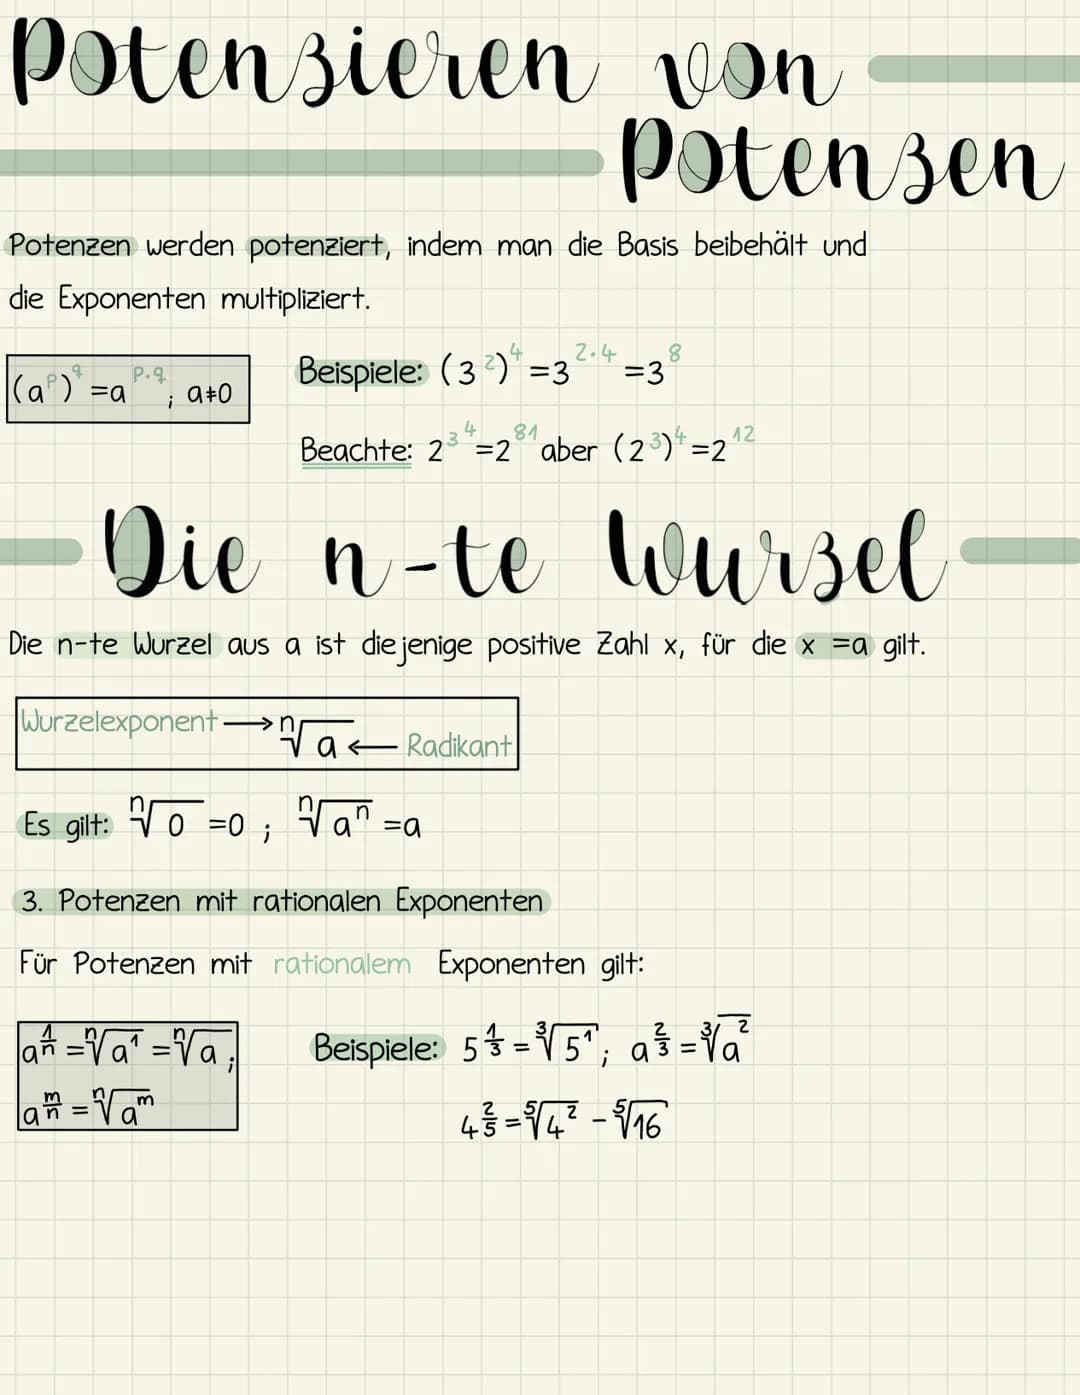 Potenzieren von
Potenzen
Potenzen werden potenziert, indem man die Basis beibehält und
die Exponenten multipliziert.
(a^p)^q = a^(p·q); a≠0
Beispiele: (3^2)^4 = 3^(2·4) = 3^8
Beachte: 2^(3^4) = 2^81 aber (2^3)^4 = 2^12
Die n-te Wurzel
Die n-te Wurzel aus a ist diejenige positive Zahl x, für die x = a gilt.
Wurzelexponent → ⁿ√a ← Radikant
Es gilt: ⁿ√0 = 0 ; ⁿ√aⁿ = a
3. Potenzen mit rationalen Exponenten
Für Potenzen mit rationalem Exponenten gilt:
a^(1/n) = ⁿ√a¹ = ⁿ√a;
a^(m/n) = ⁿ√a^m
Beispiele: 5^(1/3) = ³√5¹; a^(2/3) = ³√a²
4^(2/5) = ⁵√4² - ⁵√16